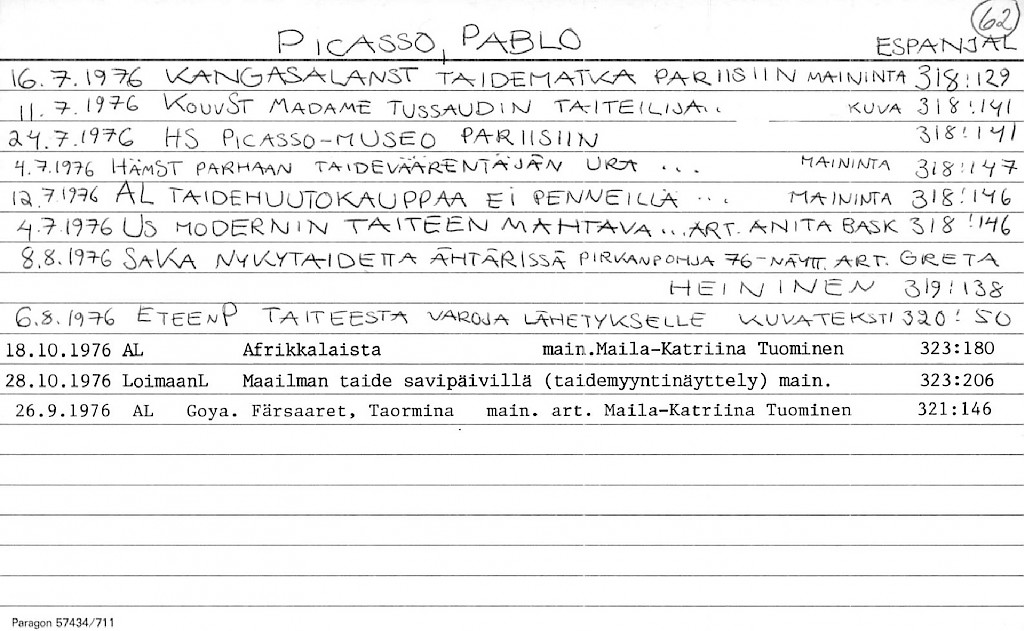 62
PICASSO, PABLO ESPANJAL
16.7.1976 KANGASALANST TAIDEMATKA PARIISIIN MAININTA 318:129
11.7.1976 KOUVST MADAME TUSSAUDIN TAITEILIJA.. KUVA 318:141
24.7.1976 HS PICASSO-MUSEO PARIISIIN 318:141
4.7.1976 HÄMST PARHAAN TAIDEVÄÄRENTÄJÄN URA ... MAININTA 318:147
12.7.1976 AL TAIDEHUUTOKAUPPAA EI PENNEILLÄ ... MAININTA 318:146
4.7.1976 US MODERNIN TAITEEN MAHTAVA...ART. ANITA BASK 318:146
8.8.1976 SAKA NYKYTAIDETTA ÄHTÄRISSÄ PIRKANPOHJA 76-NÄYTT. ART. GRETA
HEININEN 319:138
6.8.1976 ETEENP TAITEESTA VAROJA LÄHETYKSELLE KUVATEKSTI 320:50
18.10.1976 AL Afrikkalaista main.Maila-Katriina Tuominen 323:180
28.10.1976 LoimaanL Maailman taide savipäivillä (taidemyyntinäyttely) main. 323:206
26.9.1976 AL Goya. Färsaaret, Taormina main. art. Maila-Katriina Tuominen 321:146
Paragon 57434/711